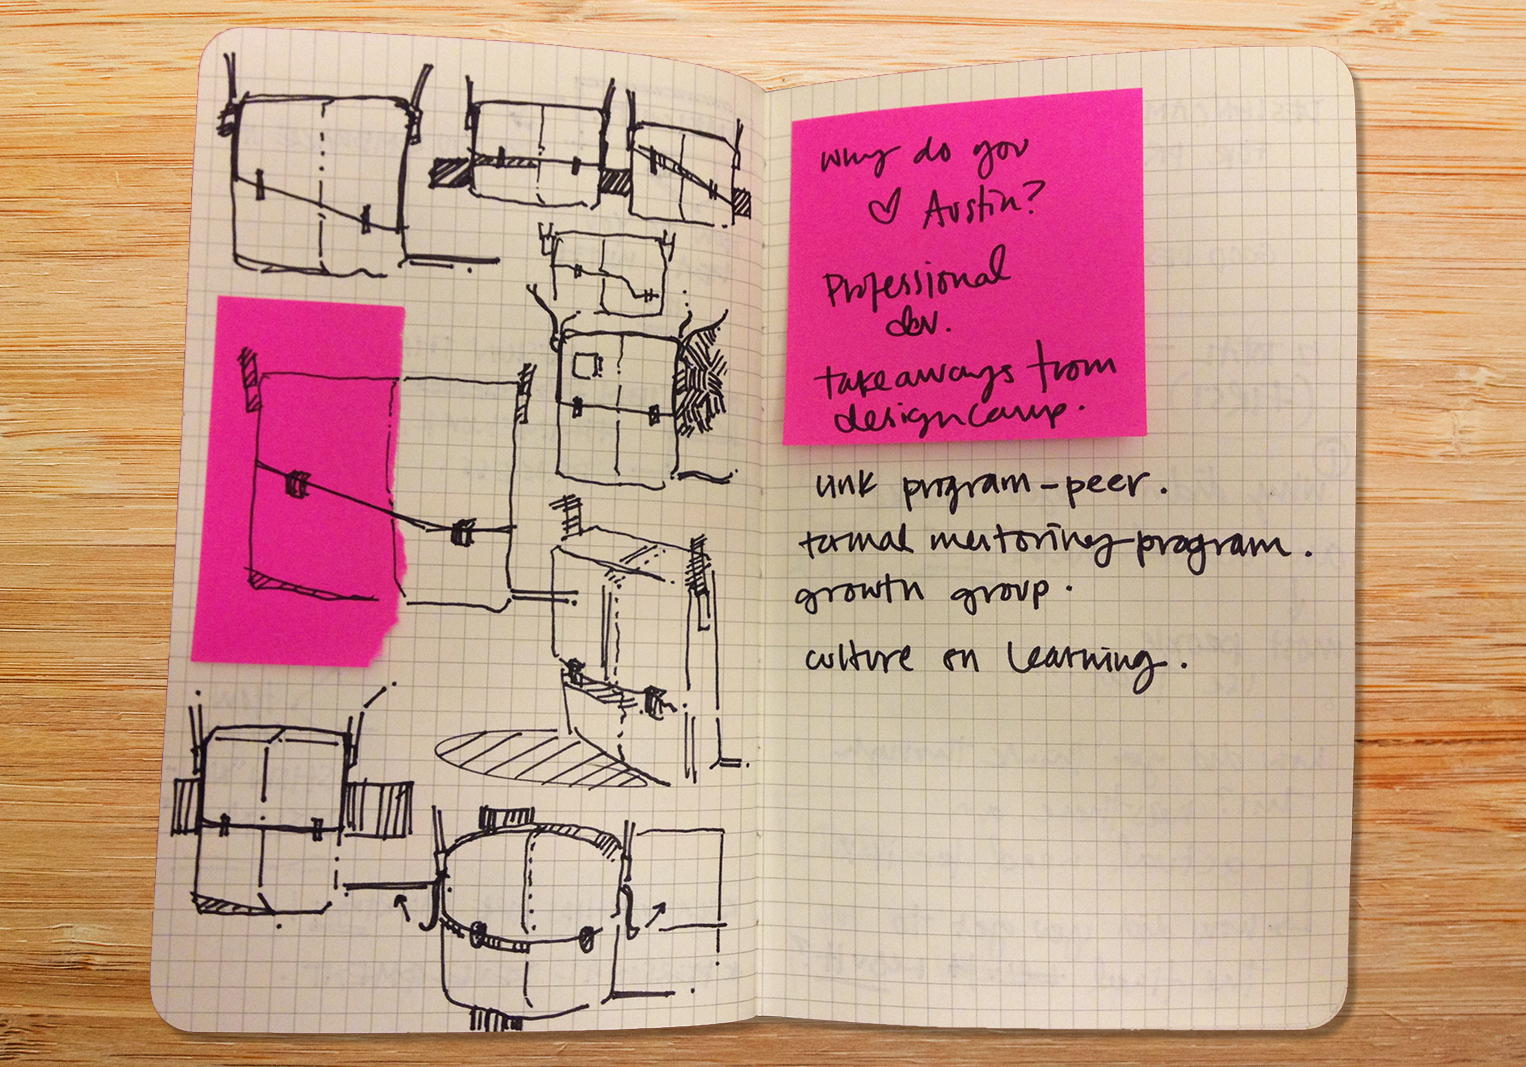 why do you
♡ Austin?
Professional
dev.
takeaways from
designcamp.
link program-peer.
formal mentoring program.
growth group.
culture on learning.